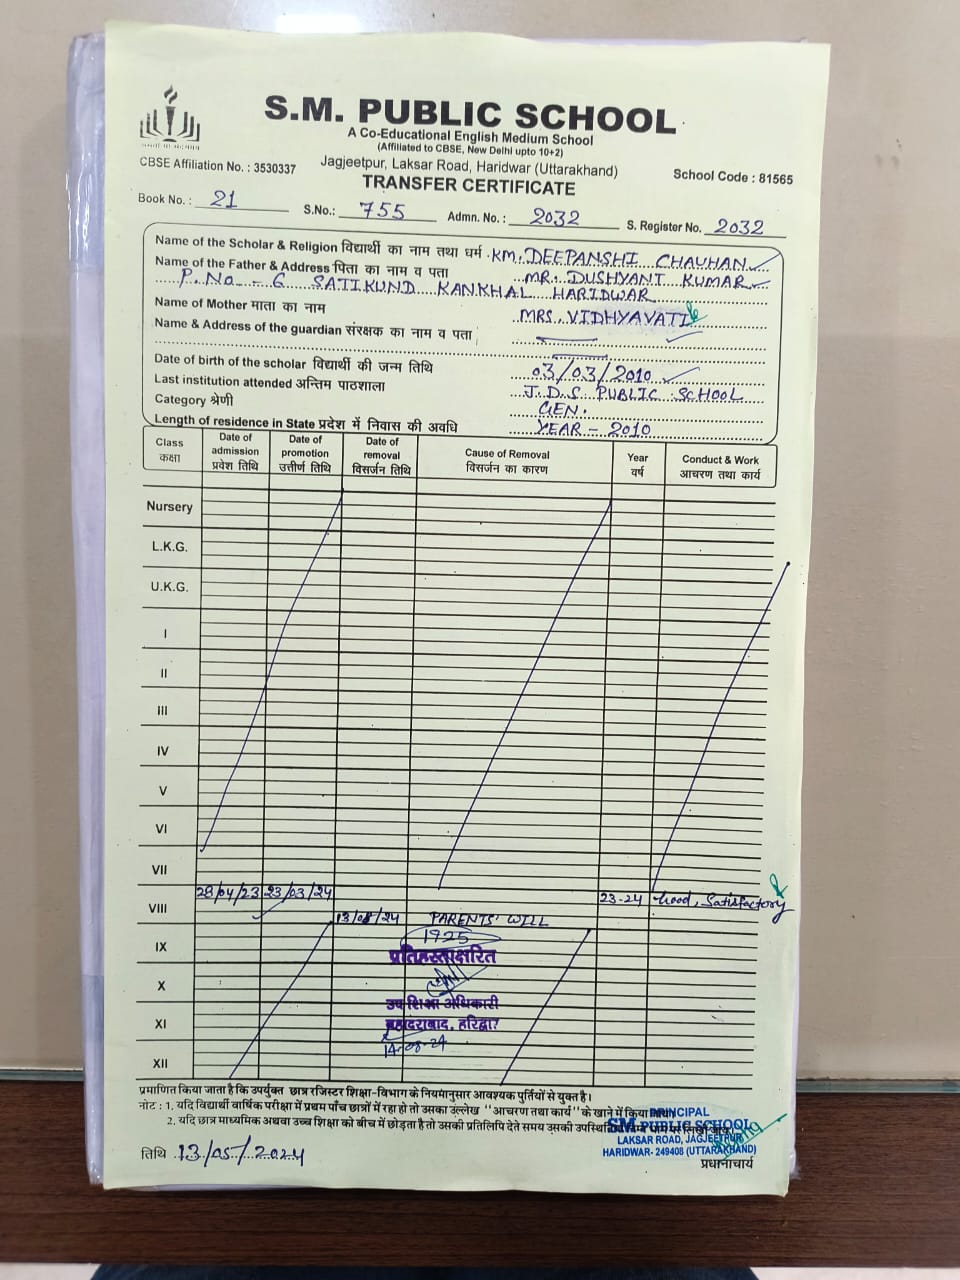 S.M. PUBLIC SCHOOL
A Co-Educational English Medium School
(Affiliated to CBSE, New Delhi upto 10+2)
CBSE Affiliation No. : 3530337 Jagjeetpur, Laksar Road, Haridwar (Uttarakhand) School Code : 81565
TRANSFER CERTIFICATE
Book No. : 21 S.No.: 755 Admn. No. : 2032 S. Register No. 2032
Name of the Scholar & Religion विद्यार्थी का नाम तथा धर्म KM. DEEPANSHI CHAUHAN
Name of the Father & Address पिता का नाम व पता MR. DUSHYANT KUMAR
P. No - 6 SATIKUND KANKHAL HARIDWAR
Name of Mother माता का नाम MRS. VIDHYAVATI
Name & Address of the guardian संरक्षक का नाम व पता
Date of birth of the scholar विद्यार्थी की जन्म तिथि 03/03/2010
Last institution attended अन्तिम पाठशाला J.D.S PUBLIC SCHOOL
Category श्रेणी GEN.
Length of residence in State प्रदेश में निवास की अवधि YEAR - 2010
Class कक्षा Date of admission प्रवेश तिथि Date of promotion उत्तीर्ण तिथि Date of removal विसर्जन तिथि Cause of Removal विसर्जन का कारण Year वर्ष Conduct & Work आचरण तथा कार्य
Nursery
L.K.G.
U.K.G.
I
II
III
IV
V
VI
VII
VIII 28/04/23 23/03/24 23-24 Good, Satisfactory
13/05/24 PARENTS' WILL
1925
IX प्रतिहस्ताक्षरित
X
उप शिक्षा अधिकारी
XI बहादराबाद, हरिद्वार
14-05-24
XII
प्रमाणित किया जाता है कि उपर्युक्त छात्र रजिस्टर शिक्षा-विभाग के नियमानुसार आवश्यक पुर्तियों से युक्त है।
नोट : 1. यदि विद्यार्थी वार्षिक परीक्षा में प्रथम पाँच छात्रों में रहा हो तो उसका उल्लेख "आचरण तथा कार्य" के खाने में किया
2. यदि छात्र माध्यमिक अथवा उच्च शिक्षा को बीच में छोड़ता है तो उसकी प्रतिलिपि देते समय उसकी
PRINCIPAL
SM PUBLIC SCHOOL
LAKSAR ROAD, JAGJEETPUR
HARIDWAR- 249408 (UTTARAKHAND)
तिथि 13/05/2024 प्रधानाचार्य